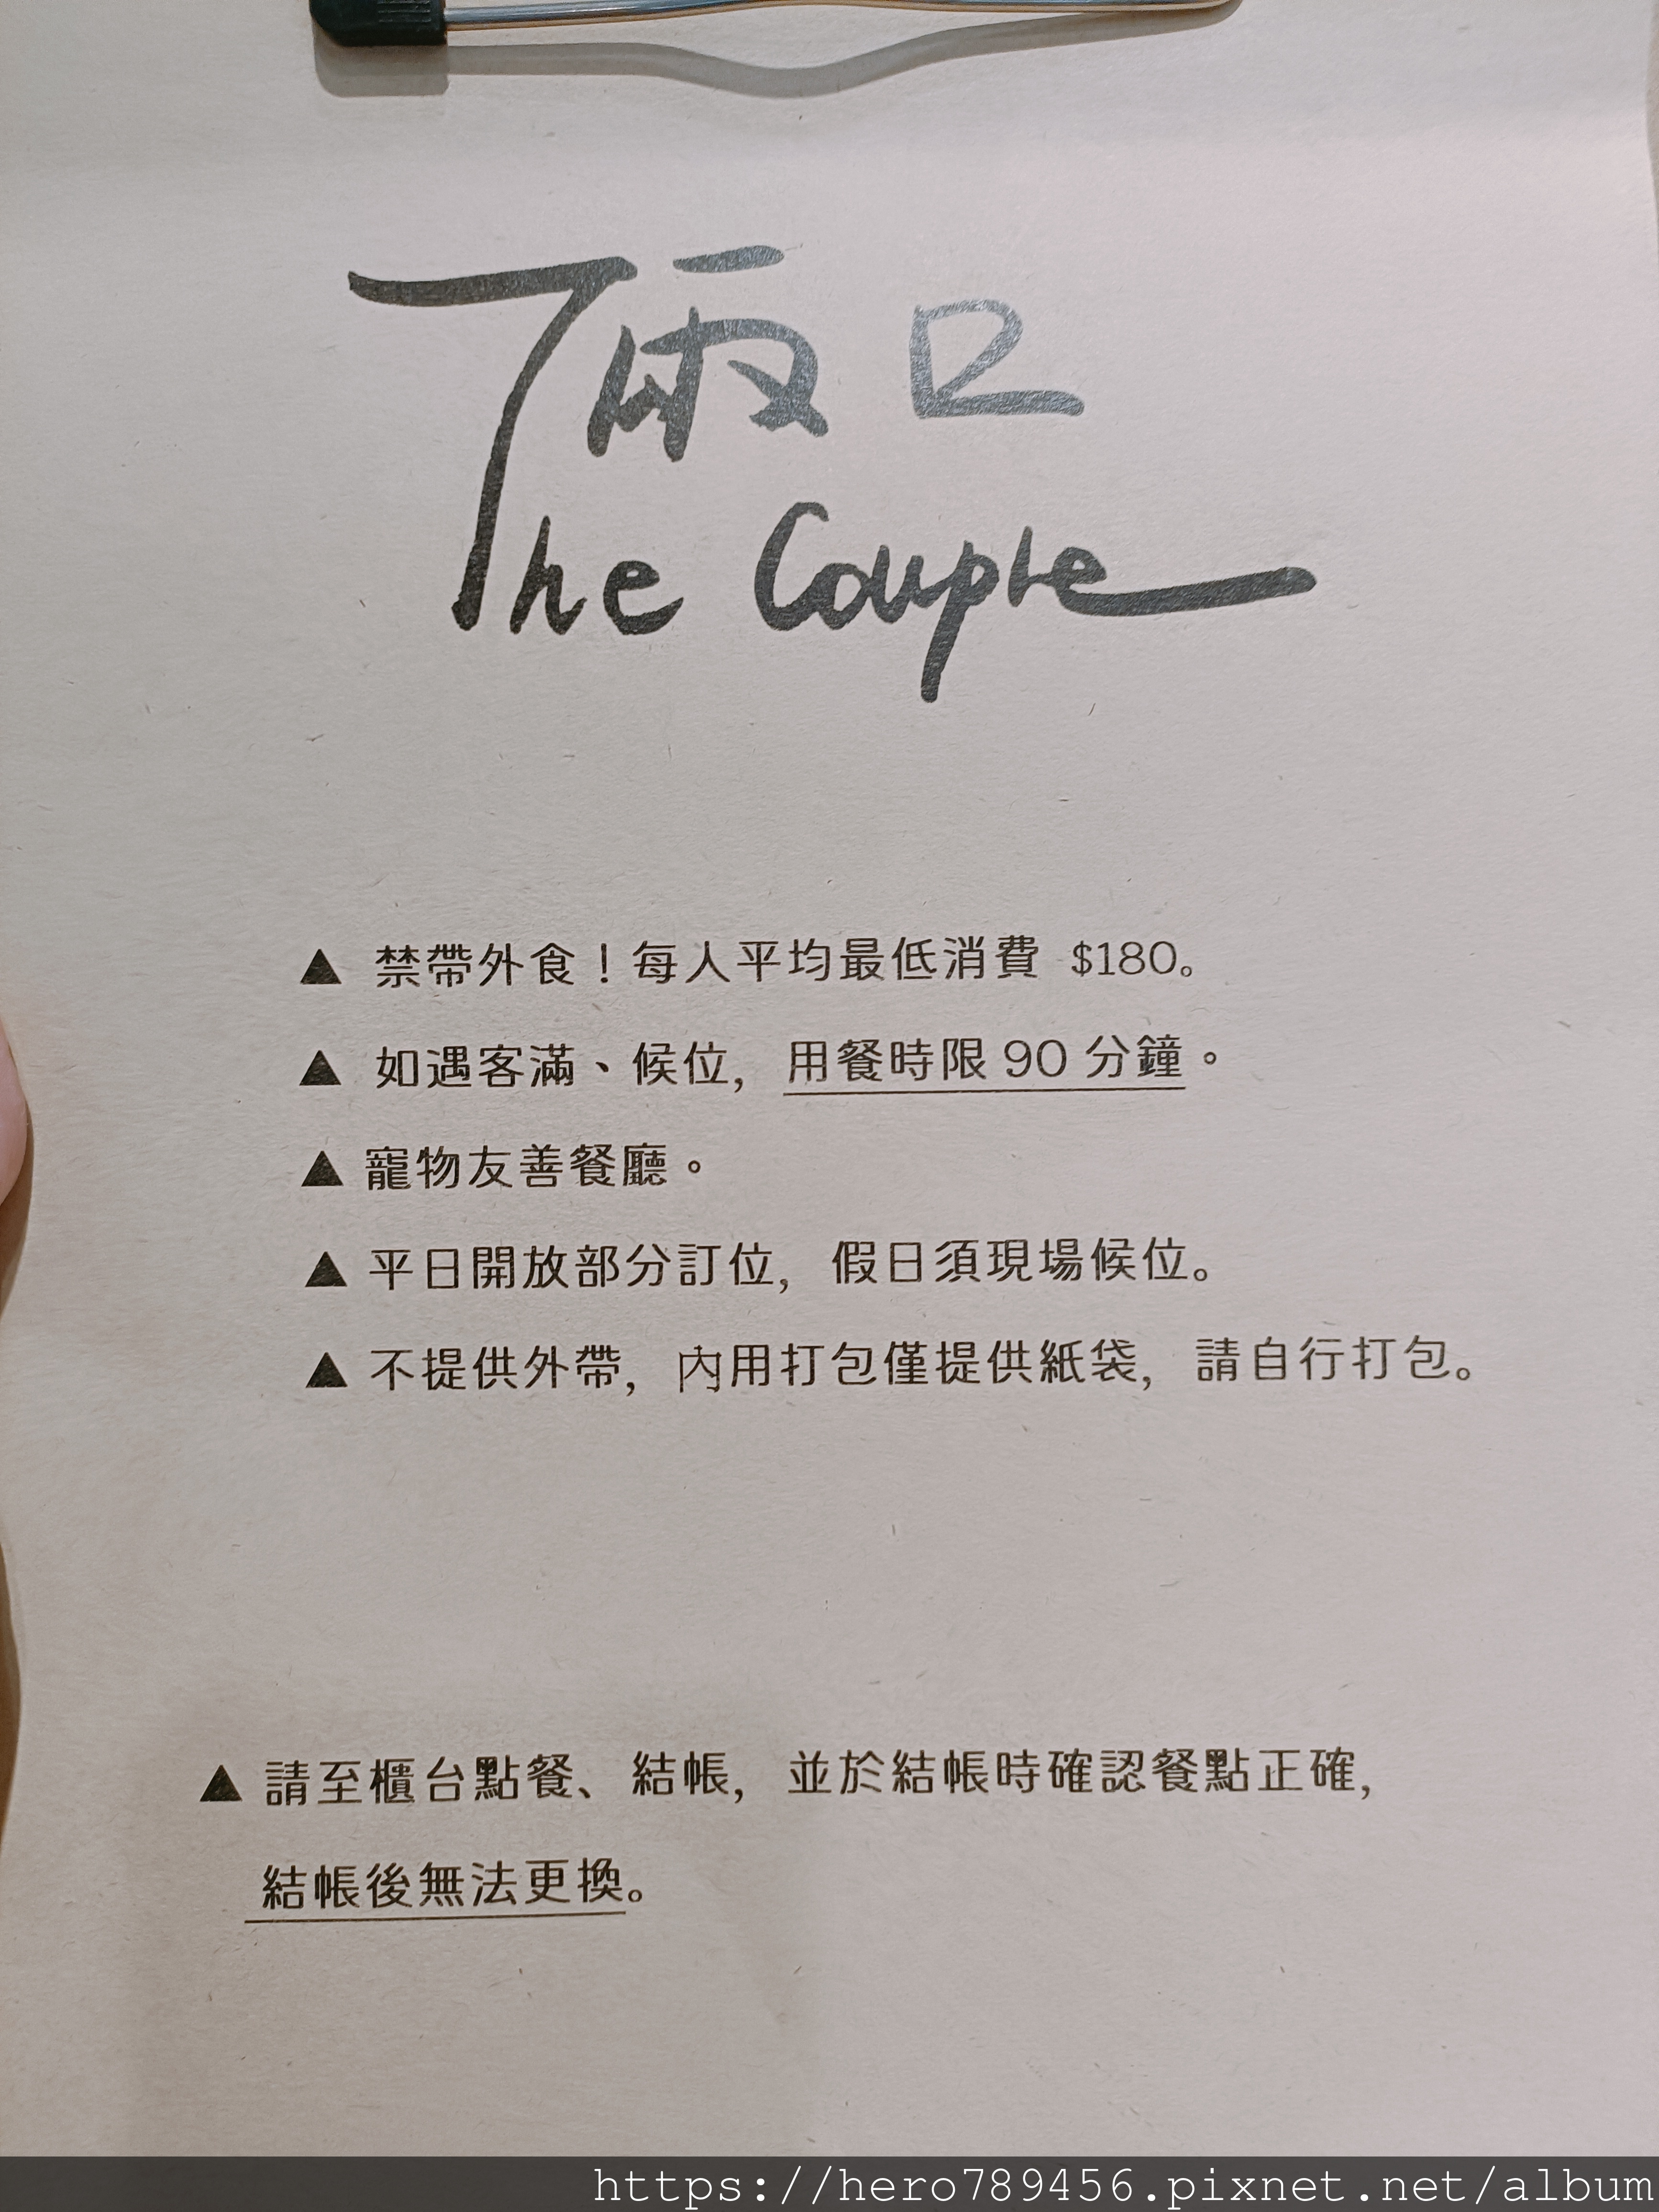 兩口
The Couple
▲ 禁帶外食！每人平均最低消費 $180。
▲ 如遇客滿、候位，用餐時限 90 分鐘。
▲ 寵物友善餐廳。
▲ 平日開放部分訂位，假日須現場候位。
▲ 不提供外帶，內用打包僅提供紙袋，請自行打包。
▲ 請至櫃台點餐、結帳，並於結帳時確認餐點正確，
結帳後無法更換。
https://hero789456.pixnet.net/album